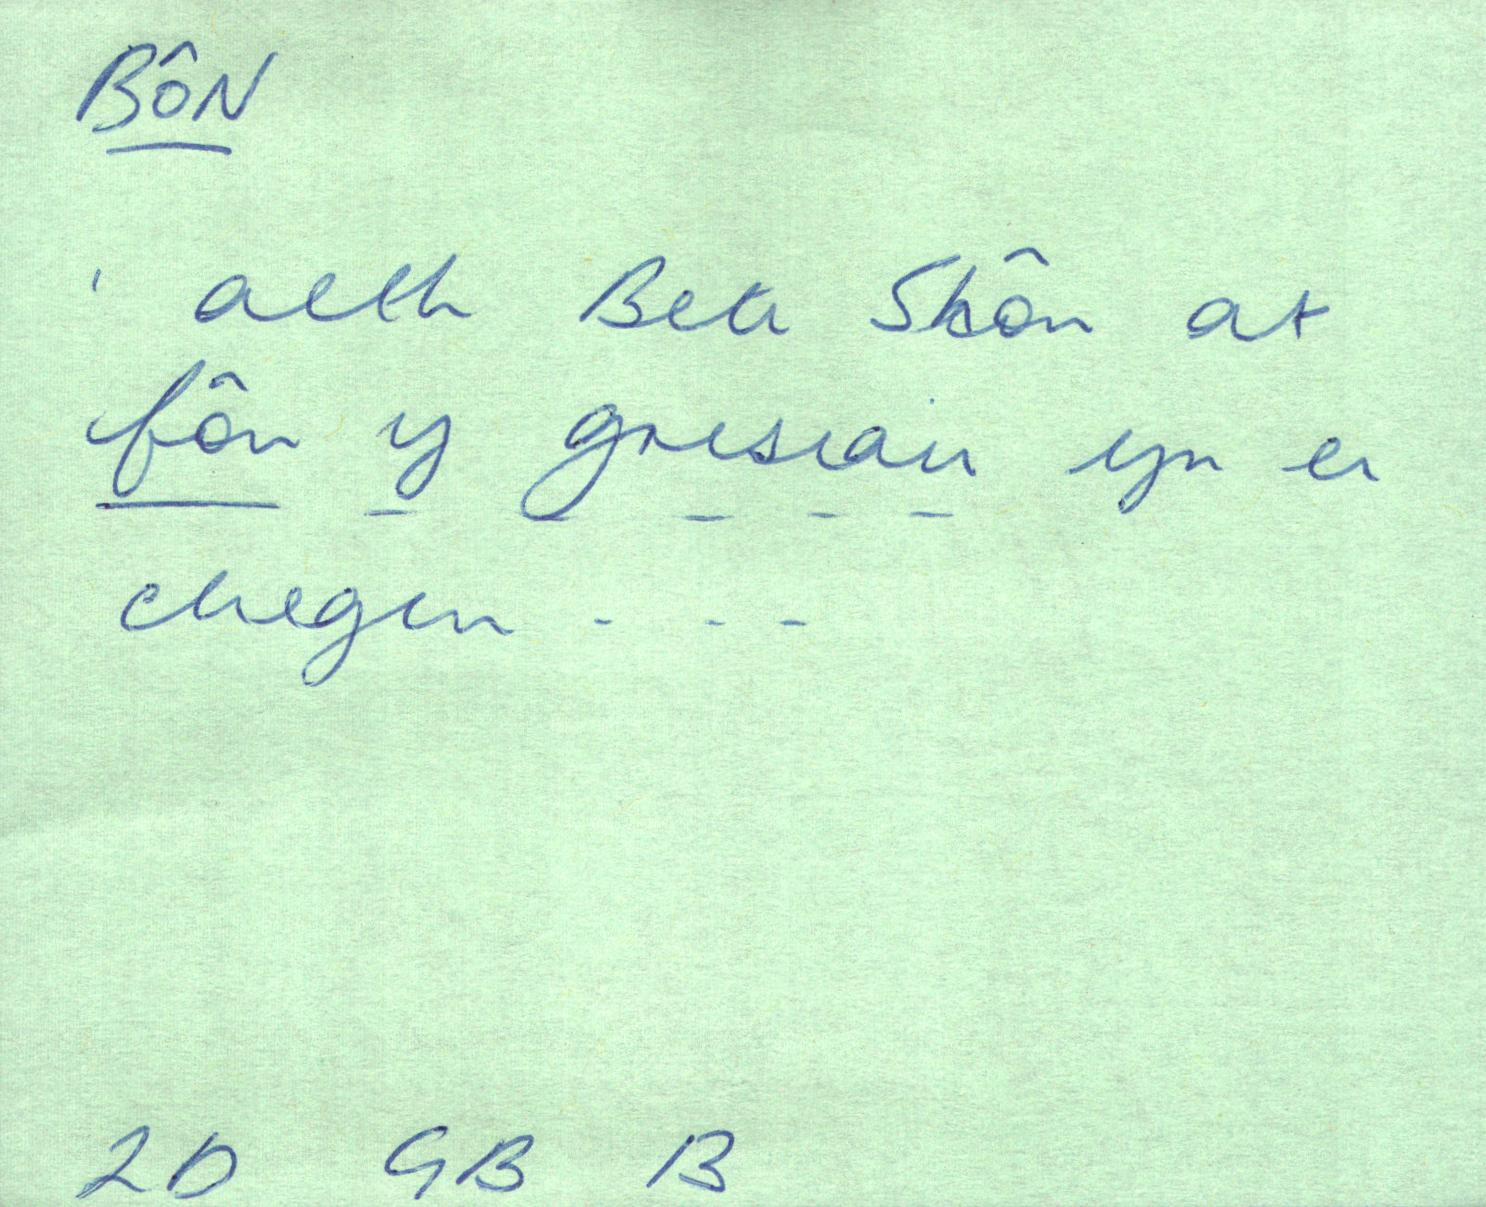 BÔN
' aeth Beti Shôn at
fôn y grisiau yn ei
chegin - - -
2D GB B